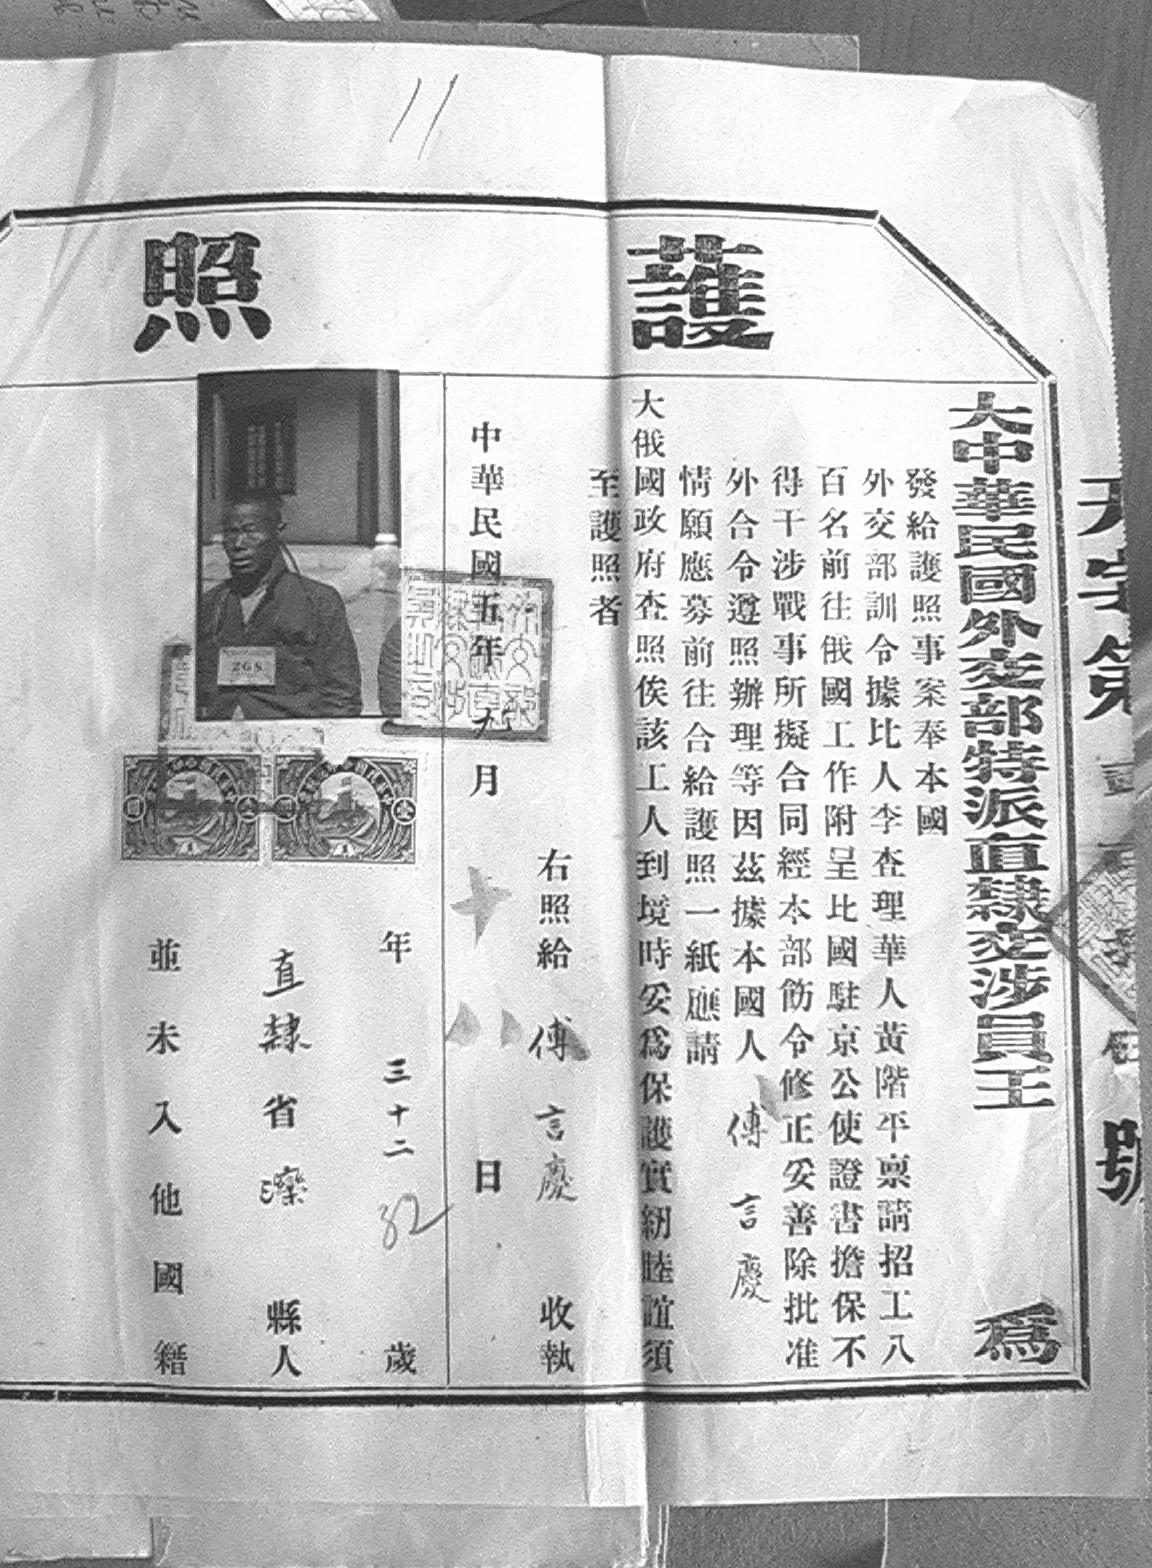 護照
大中華民國外交部特派直隸交涉員王 爲
發給護照事案奉本國
外交部訓令據比人李查理華人黃階平禀請招工八
百名前往俄國工作附呈比國駐京公使證書擔保不
得干涉戰事所擬合同經本部飭令修正妥善除批准
外合令遵照辦理等因茲據本國人 傅言慶
情願應募前往合給護照一紙應請
大俄國政府查照俟該工人到境時妥爲保護實紉睦誼須
至護照者
右照給 傅言慶 收執
中華民國五年九月 日
268
年 三十二 歲
直隸省 縣人
並未入他國籍
82
號
11